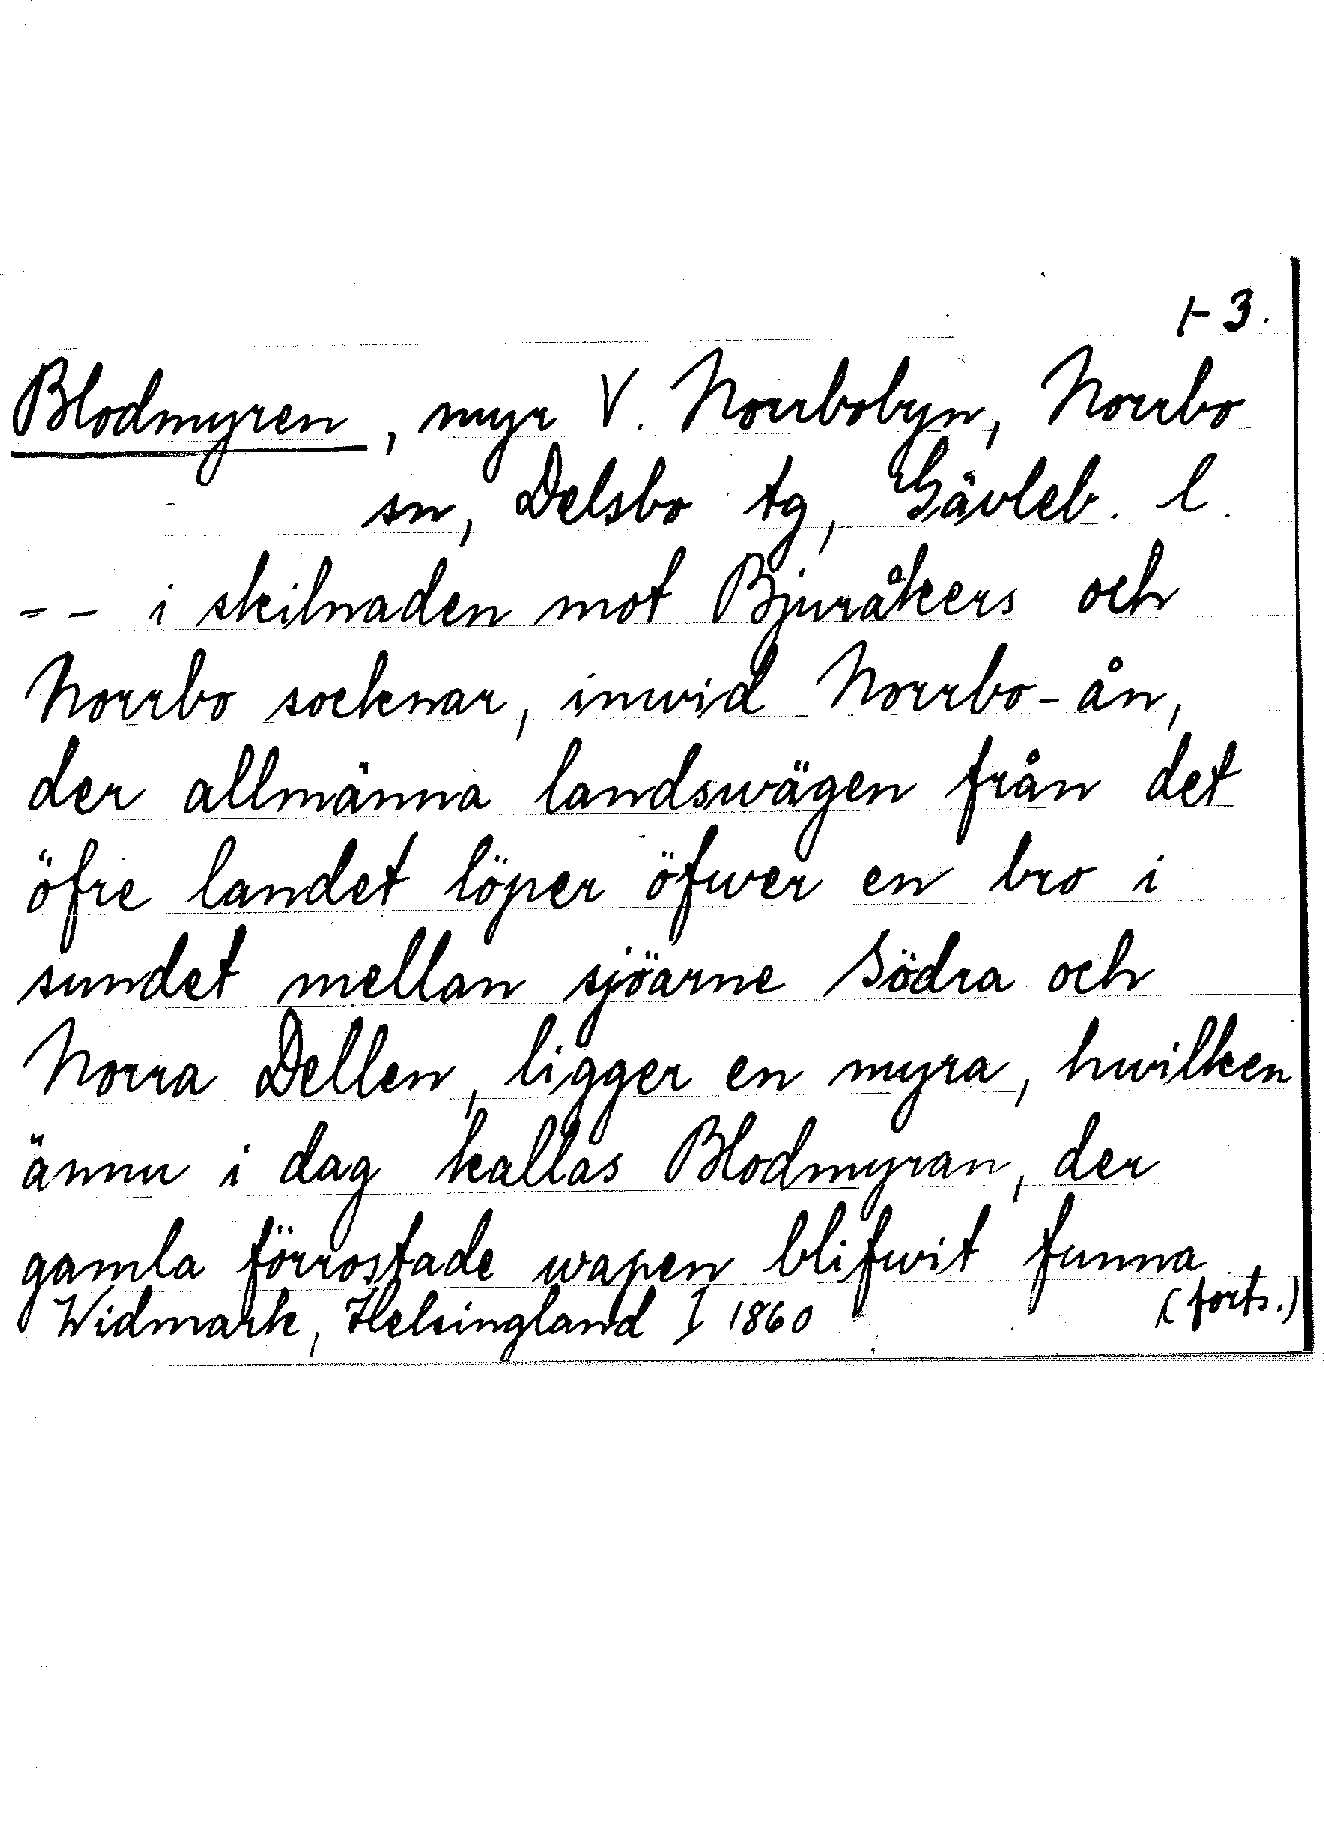 1-3.
Blodmyren, myr V. Norrbobyn, Norrbo
sn, Delsbo tg, Gävleb. l.
-- i skilnaden mot Bjuråkers och
Norrbo socknar, inwid Norrbo-ån,
der allmänna landswägen från det
öfre landet löper öfwer en bro i
sundet mellan sjöarne Södra och
Norra Dellen, ligger en myra, hwilken
ännu i dag kallas Blodmyran, der
gamla förrostade wapen blifwit funna
(forts.)
Widmark, Helsingland I 1860